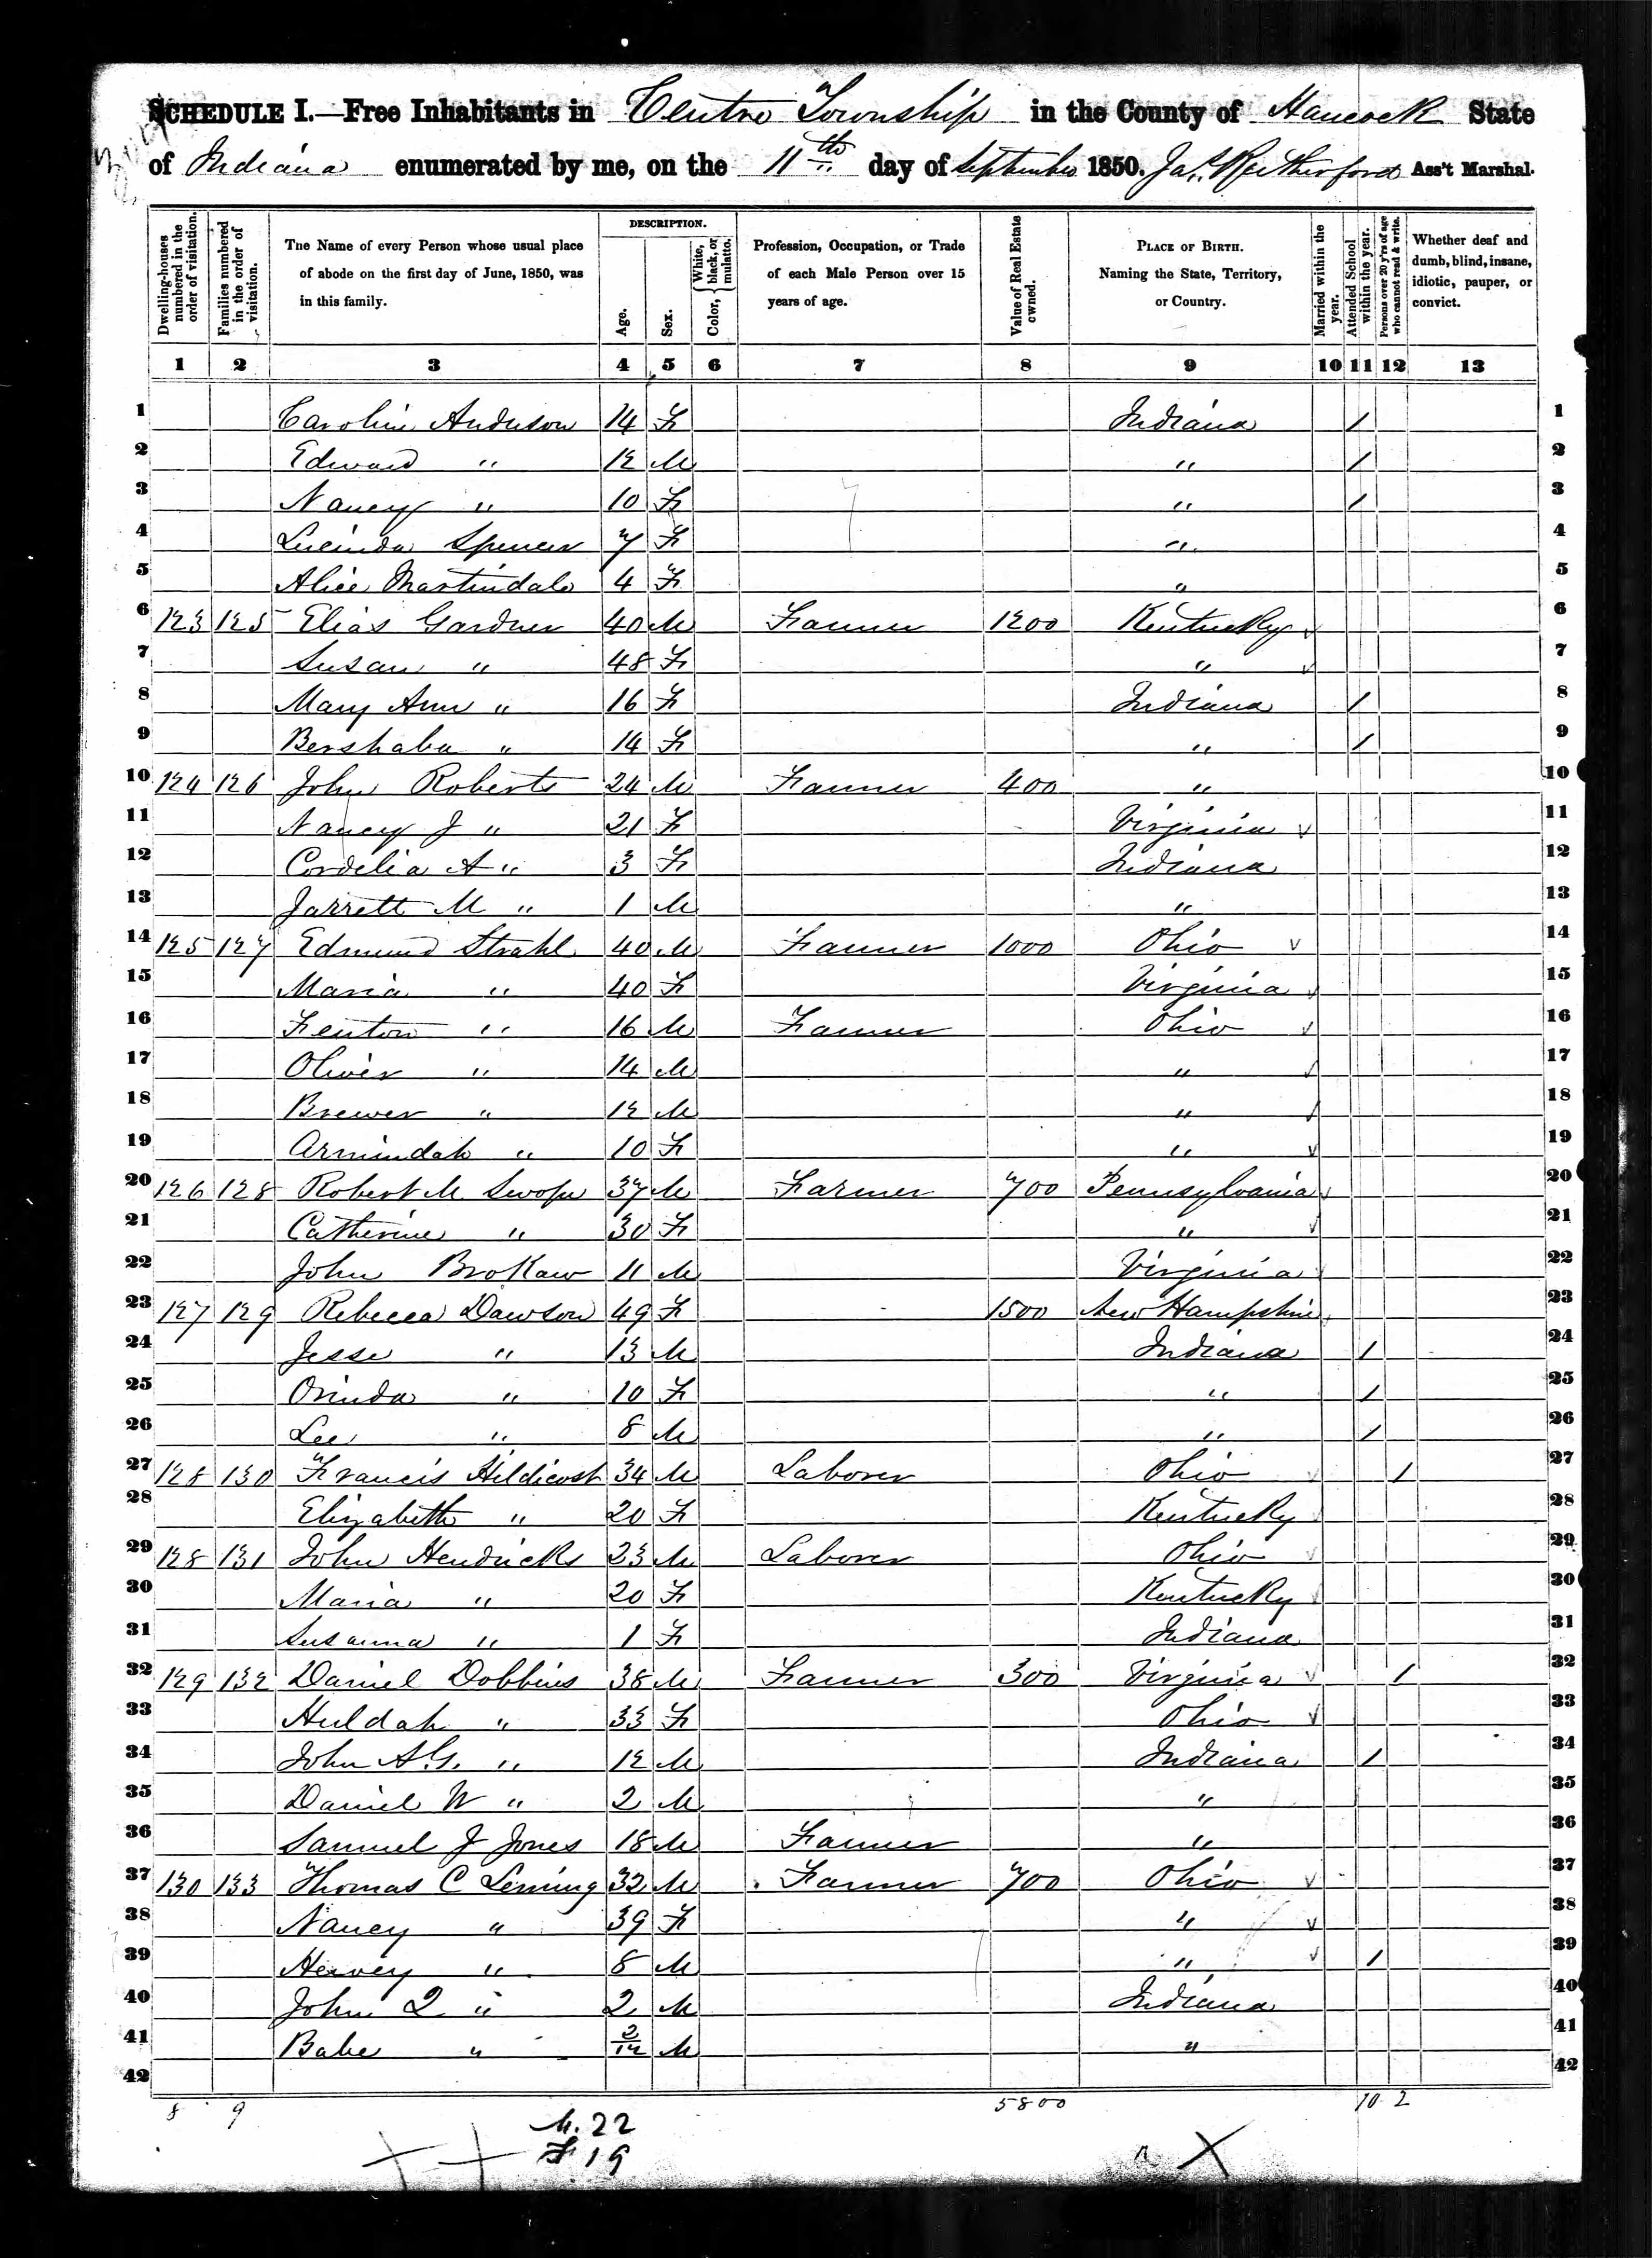 SCHEDULE I.—Free Inhabitants in Centre Township in the County of Hancock State
of Indiana enumerated by me, on the 11th day of September 1850. Jas. Rutherford Ass't Marshal.
Dwelling-houses numbered in the order of visitation.
Families numbered in the order of visitation.
The Name of every Person whose usual place of abode on the first day of June, 1850, was in this family.
DESCRIPTION.
Age.
Sex.
Color, { White, black, or mulatto.
Profession, Occupation, or Trade of each Male Person over 15 years of age.
Value of Real Estate owned.
PLACE OF BIRTH. Naming the State, Territory, or Country.
Married within the year.
Attended School within the year.
Persons over 20 y'rs of age who cannot read & write.
Whether deaf and dumb, blind, insane, idiotic, pauper, or convict.
1 2 3 4 5 6 7 8 9 10 11 12 13
1 Caroline Anderson 14 F Indiana / 1
2 Edward " 12 M " / 2
3 Nancy " 10 F " / 3
4 Lucinda Spencer 7 F " 4
5 Alice Martindale 4 F " 5
6 123 125 Elias Gardner 40 M Farmer 1200 Kentucky 6
7 Susan " 48 F " 7
8 Mary Ann " 16 F Indiana / 8
9 Bershaba " 14 F " / 9
10 124 126 John Roberts 24 M Farmer 400 " 10
11 Nancy J " 21 F Virginia 11
12 Cordelia A " 3 F Indiana 12
13 Jarrett M " 1 M " 13
14 125 127 Edmund Strahl 40 M Farmer 1000 Ohio 14
15 Maria " 40 F Virginia 15
16 Fenton " 16 M Farmer Ohio 16
17 Oliver " 14 M " 17
18 Brewer " 12 M " 18
19 Armindah " 10 F " 19
20 126 128 Robert M. Swope 37 M Farmer 700 Pennsylvania 20
21 Catherine " 30 F " 21
22 John BroKaw 11 M Virginia 22
23 127 129 Rebecca Dawson 49 F 1500 New Hampshire 23
24 Jesse " 13 M Indiana / 24
25 Orinda " 10 F " / 25
26 Lee " 8 M " / 26
27 128 130 Francis Hildicost 34 M Laborer Ohio / 27
28 Elizabeth " 20 F Kentucky 28
29 128 131 John Hendricks 23 M Laborer Ohio 29
30 Maria " 20 F Kentucky 30
31 Susanna " 1 F Indiana 31
32 129 132 Daniel Dobbins 38 M Farmer 300 Virginia / 32
33 Huldah " 33 F Ohio 33
34 John A.G. " 12 M Indiana / 34
35 Daniel W " 2 M " 35
36 Samuel J Jones 18 M Farmer " 36
37 130 133 Thomas C Leming 32 M Farmer 700 Ohio 37
38 Nancy " 39 F " 38
39 Hervey " 8 M " / 39
40 John Q " 2 M Indiana 40
41 Babe " 2/12 M " 41
42 42
8 9 5800 10 2
M. 22
F. 19